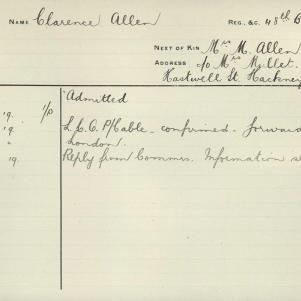 NAME Clarence Allen
REG. &C. 48th B
NEXT OF KIN Mrs M. Allen
ADDRESS c/o Mrs
Hartwell St. Hackney
Admitted
19.
19. L.C.O. P/Cable confirmed. forward
" London.
19 Reply from Commrs. Information s